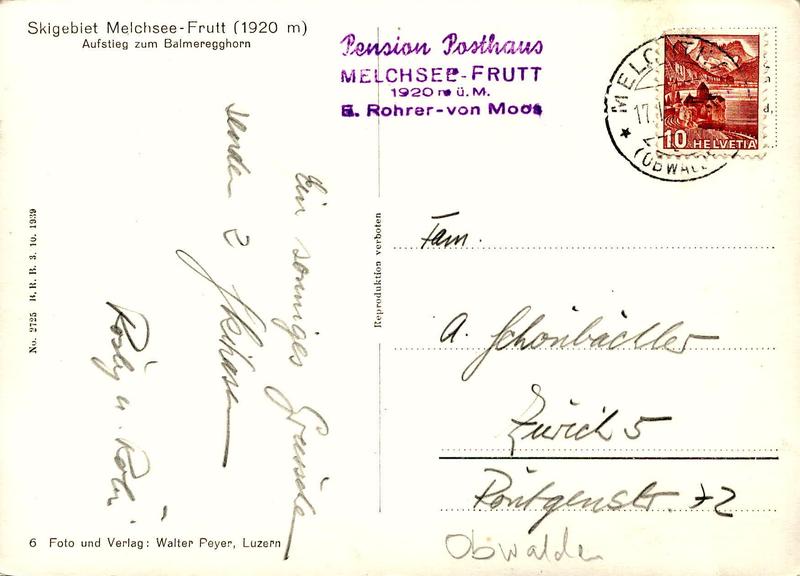 Skigebiet Melchsee-Frutt (1920 m)
Aufstieg zum Balmeregghorn
Pension Posthaus
MELCHSEE-FRUTT
1920 m ü. M.
E. Rohrer-von Moos
MELC
17.
(OBWAL
10 HELVETIA
Ein sonniges Grüssche
senden 2 Skihasen
Rösly u. Röbi
No. 2725 B. R. B. 3. 10. 1939
Reproduktion verboten
Fam.
A. Schönbächler
Zürich 5
Röntgenstr. 72
Obwalden
6 Foto und Verlag: Walter Peyer, Luzern